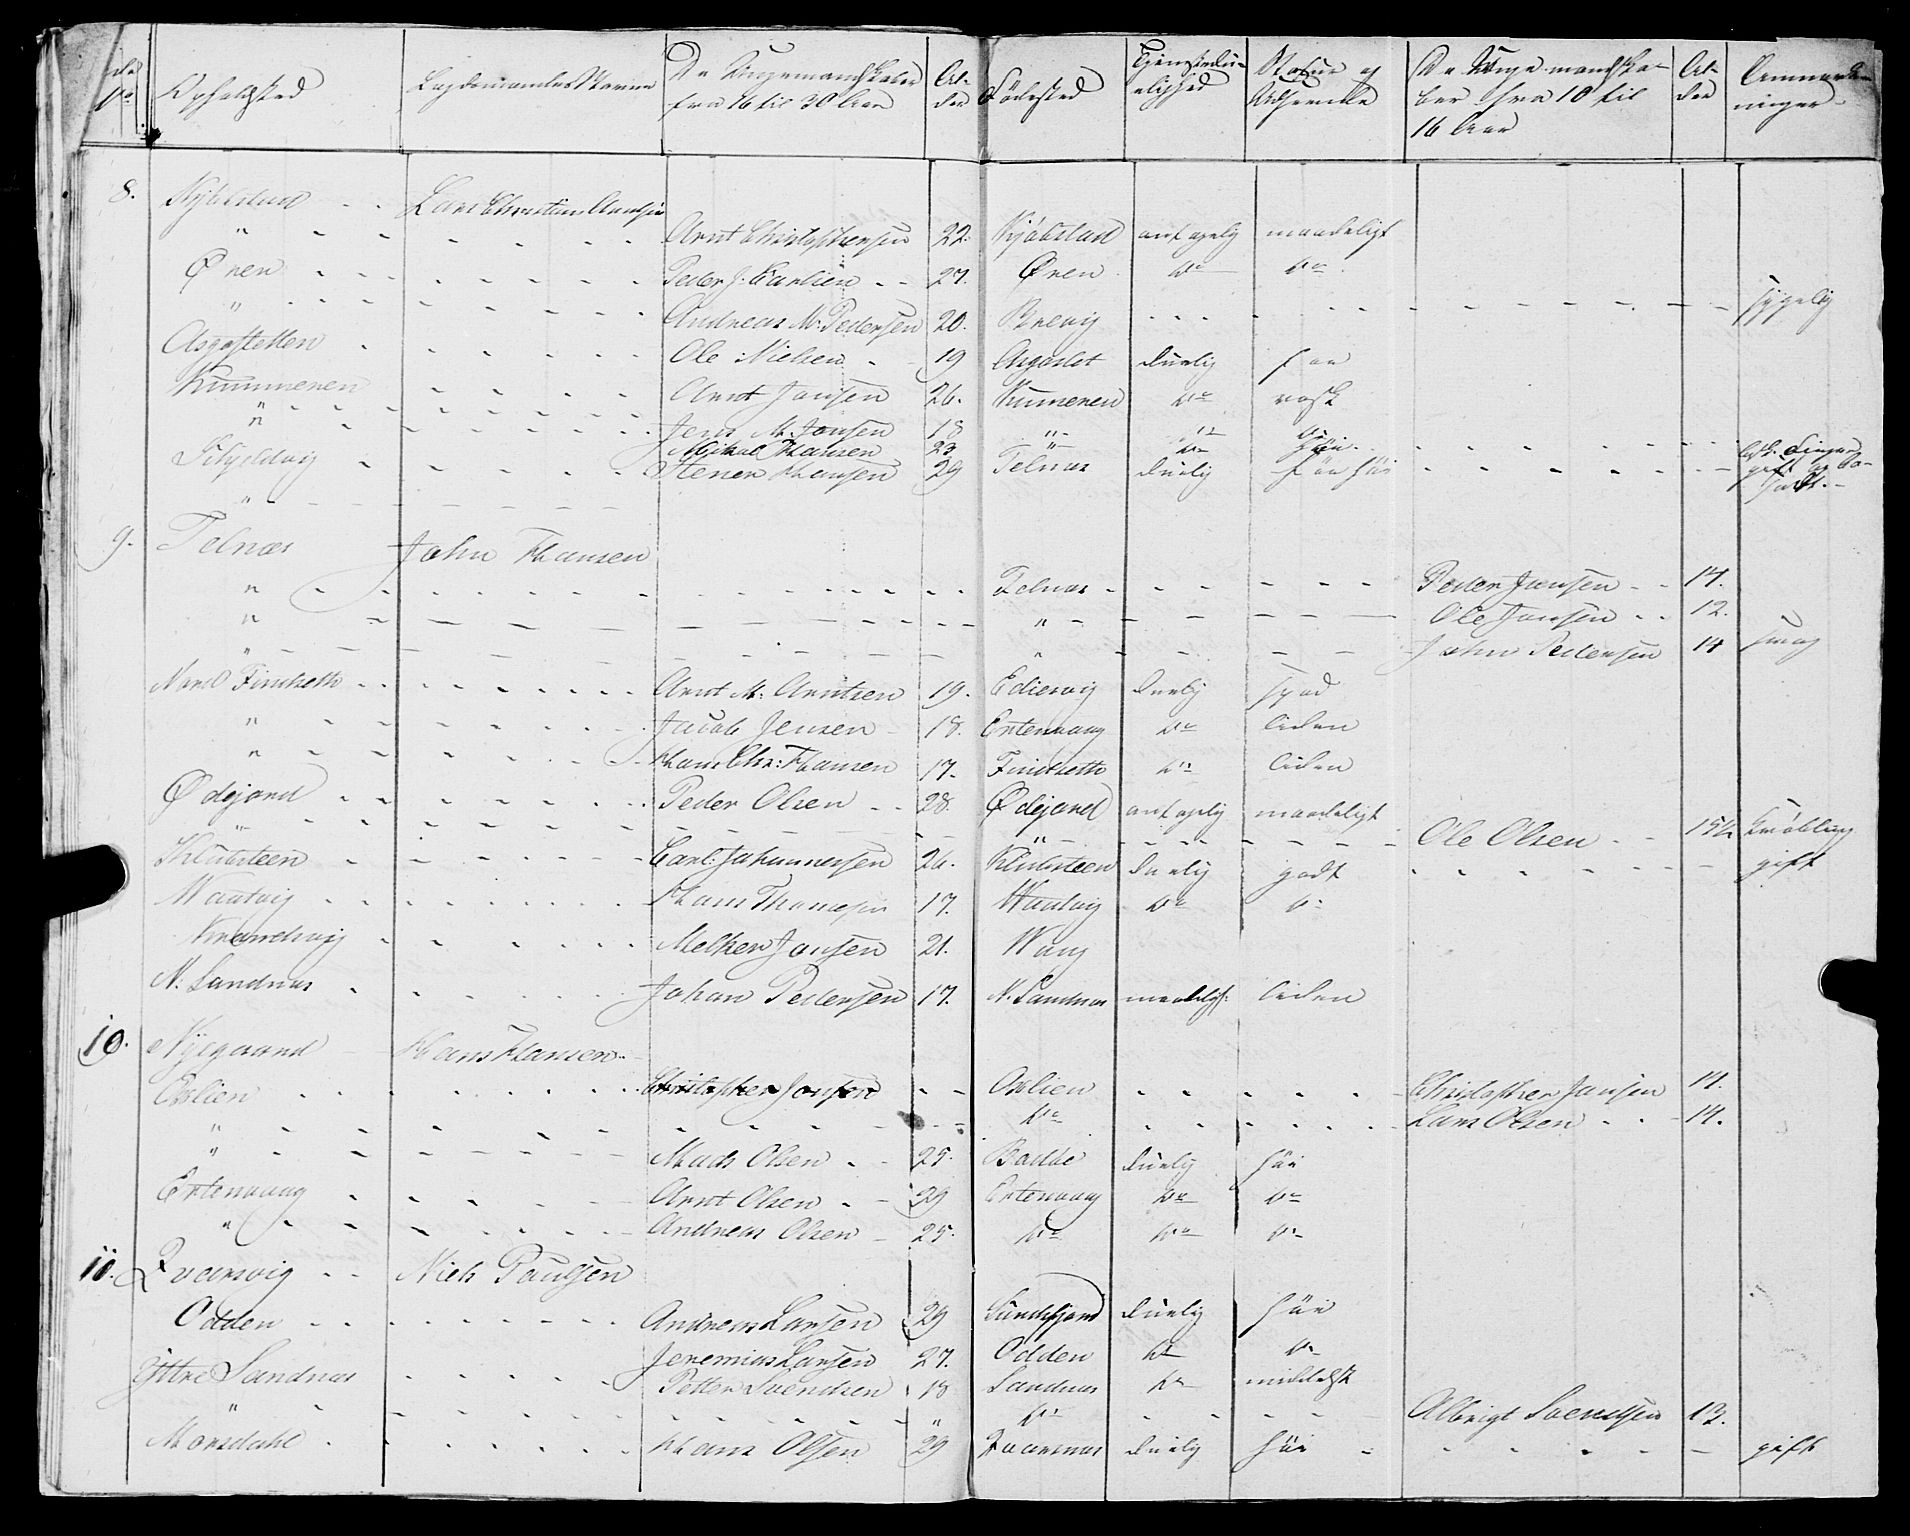 Opholdsted | Lagdsmandens Navne | De Unge mandskaber fra 16 til 30 Aar | Alder | Födested | Tjenestdueelighed | Statur og Udseende | De Unge mandskaber fra 10 til 16 Aar | Alder | Anmærkninger
8. Kjölstad Lars Christian Arntsen
" Arnt Christophersen 22. Kjölstad antagelig maadeligt
Øren Peder J: Carlsen 27. Øren do do
" Andreas M. Pedersen 20. Brevig sygelig
Asgasletten Ole Nielsen 19 Asgaslet duelig
Kummenen Arnt Jansen 26. Kumenen do rask
" Jens M. Jonsen 18 " do do
" Mikal Hansen 23 " do
Skjeldvig Stener Hansen 29 Telnæs duelig gift
"
9. Telnæs John Hansen
" Telnæs Peder Jansen 14.
" " Ole Jonsen 12.
" " John Pedersen 14 svag
Nord Findseth Arnt M: Arntzen 19. Edisvig duelig spæd
" Jacob Jensen 18. Ertenvaag do liden
" Hans Chr: Hansen 17. Findseth do liden
Ødejord Peder Olsen 28. Ødejord antagelig maadeligt
" " Ole Olsen 15½ Krøbling
Klubsteen Carl: Johannessen 26. Klubsteen duelig godt gift
Naatvig Hans Thomesen 17. Naatvig do do
Melker Jonsen 21. Waag
N: Sandnæs Johan Pedersen 17. N. Sandnæs maadeligt liden
10. Nygaard Hans Hansen
Oxlien Christopher Jonsen Oxlien Christopher Jansen 14.
" do Lars Olsen 14.
" Mads Olsen 25. duelig
Ertenvaag Arnt Olsen 29 Ertenvaag do do
" Andreas Olsen 25. do do do
11. Qvarsvig Niels Paulsen
Odden Andreas Larsen 29 duelig
Jeremias Larsen 27. Odden do do
Yttre Sandnæs Petter Svendsen 18 Sandnæs do middelsk
" " do Albrigt Svendsen 13.
Morsdahl Hans Olsen 29 duelig gift